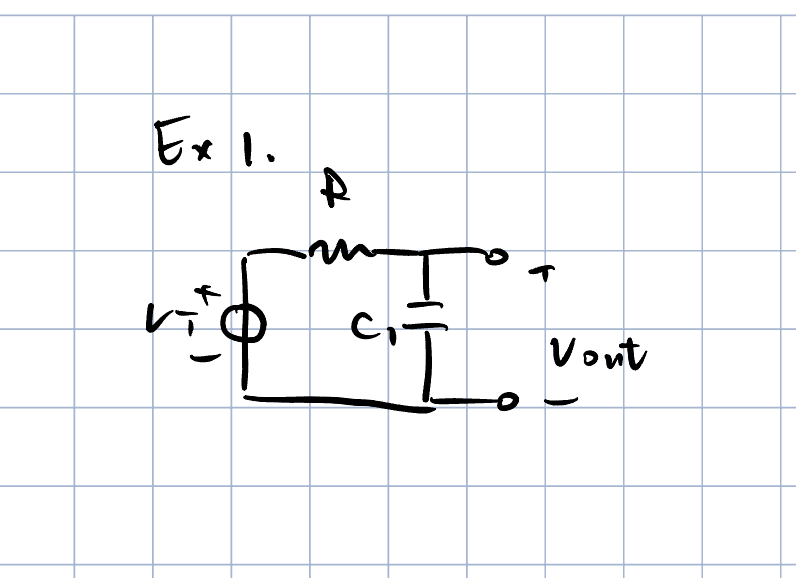 Ex 1.
R
+
VI
C1
-
+
Vout
-